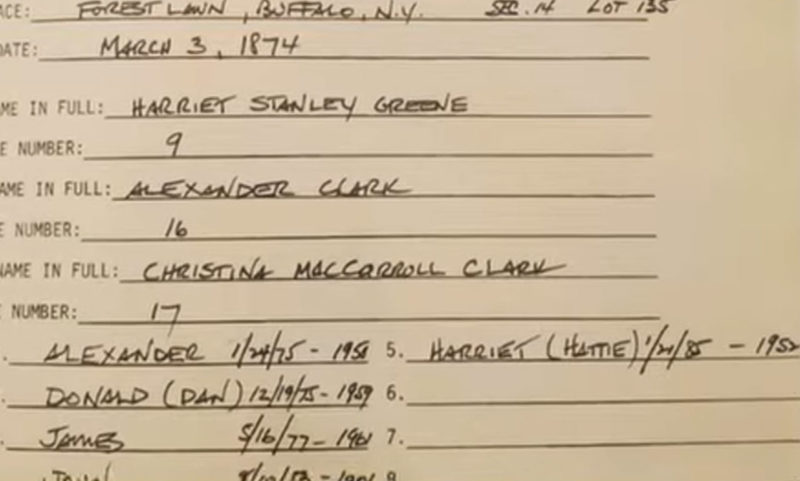 ACE: FOREST LAWN, BUFFALO, N.Y. SEC. 14 LOT 135
DATE: MARCH 3, 1874
ME IN FULL: HARRIET STANLEY GREENE
E NUMBER: 9
AME IN FULL: ALEXANDER CLARK
E NUMBER: 16
NAME IN FULL: CHRISTINA MACCARROLL CLARK
E NUMBER: 17
. ALEXANDER 1/24/75 - 1958 5. HARRIET (HATTIE) 1/21/85 - 1952
. DONALD (DAN) 12/19/75 - 1959 6.
. JAMES 5/16/77 - 1961 7.
JOHN